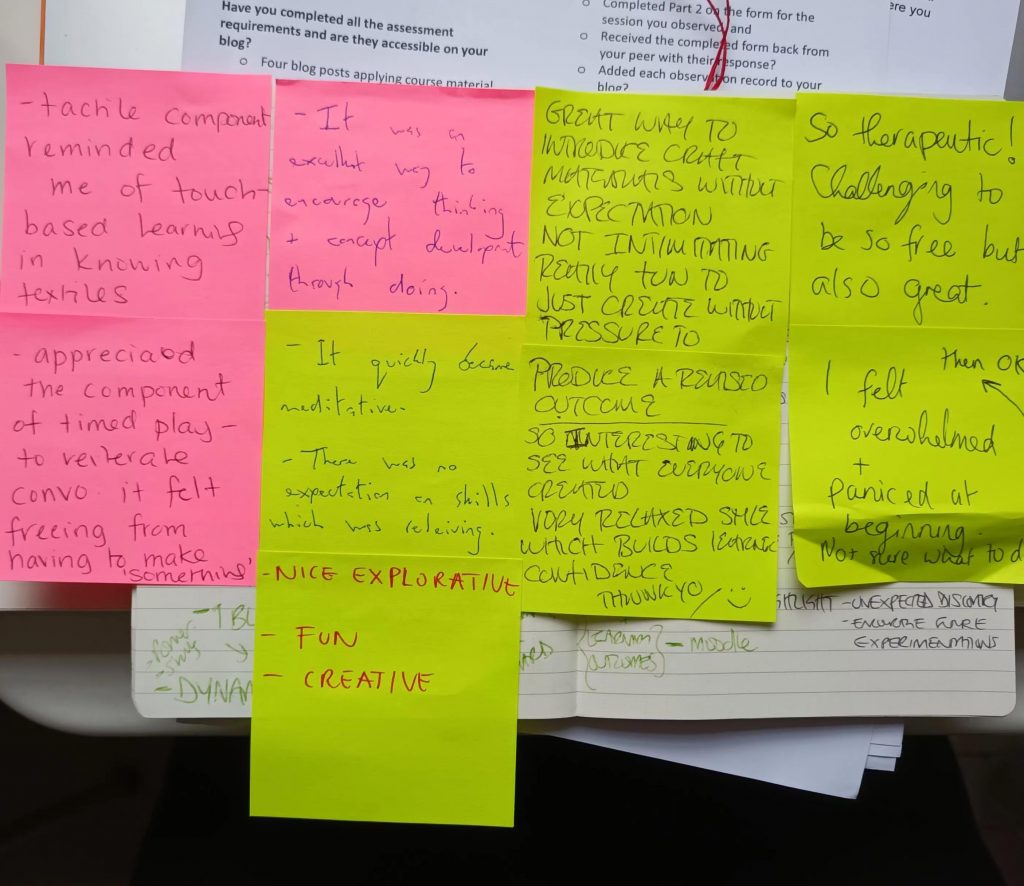 Have you completed all the assessment
requirements and are they accessible on your
blog?
o Four blog posts applying course material
o Completed Part 2 on the form for the
session you observed, and
o Received the completed form back from
your peer with their response?
o Added each observation record to your
blog?
ere you
- tactile component
reminded
me of touch-
based learning
in knowing
textiles
- appreciaed
the component
of timed play -
to reiterate
convo. it felt
freeing from
having to make
'something'
- It was an
excellent way to
encourage thinking
+ concept development
through doing.
- It quickly became
meditative.
- There was no
expectation on skills
which was releiving.
- NICE EXPLORATIVE
- FUN
- CREATIVE
GREAT WAY TO
INTRODUCE CRAFT
MATERIALS WITHOUT
EXPECTATION
NOT INTIMITATING
REALLY FUN TO
JUST CREATE WITHOUT
PRESSURE TO
PRODUCE A REVISED
OUTCOME
SO INTERESTING TO
SEE WHAT EVERYONE
CREATED
VERY RELAXED SMLE
WHICH BUILDS LEARNER
CONFIDENCE
THANKYO
So therapeutic!
Challenging to
be so free but
also great.
then OK
I felt
overwhelmed
+
Paniced at
beginning.
Not sure what to d
- 1 BL
- DYNAM
LEARNING
OUTCOMES
- moodle
HLIGHT - UNEXPECTED DISCOVERY
EXPERIMENTATIONS